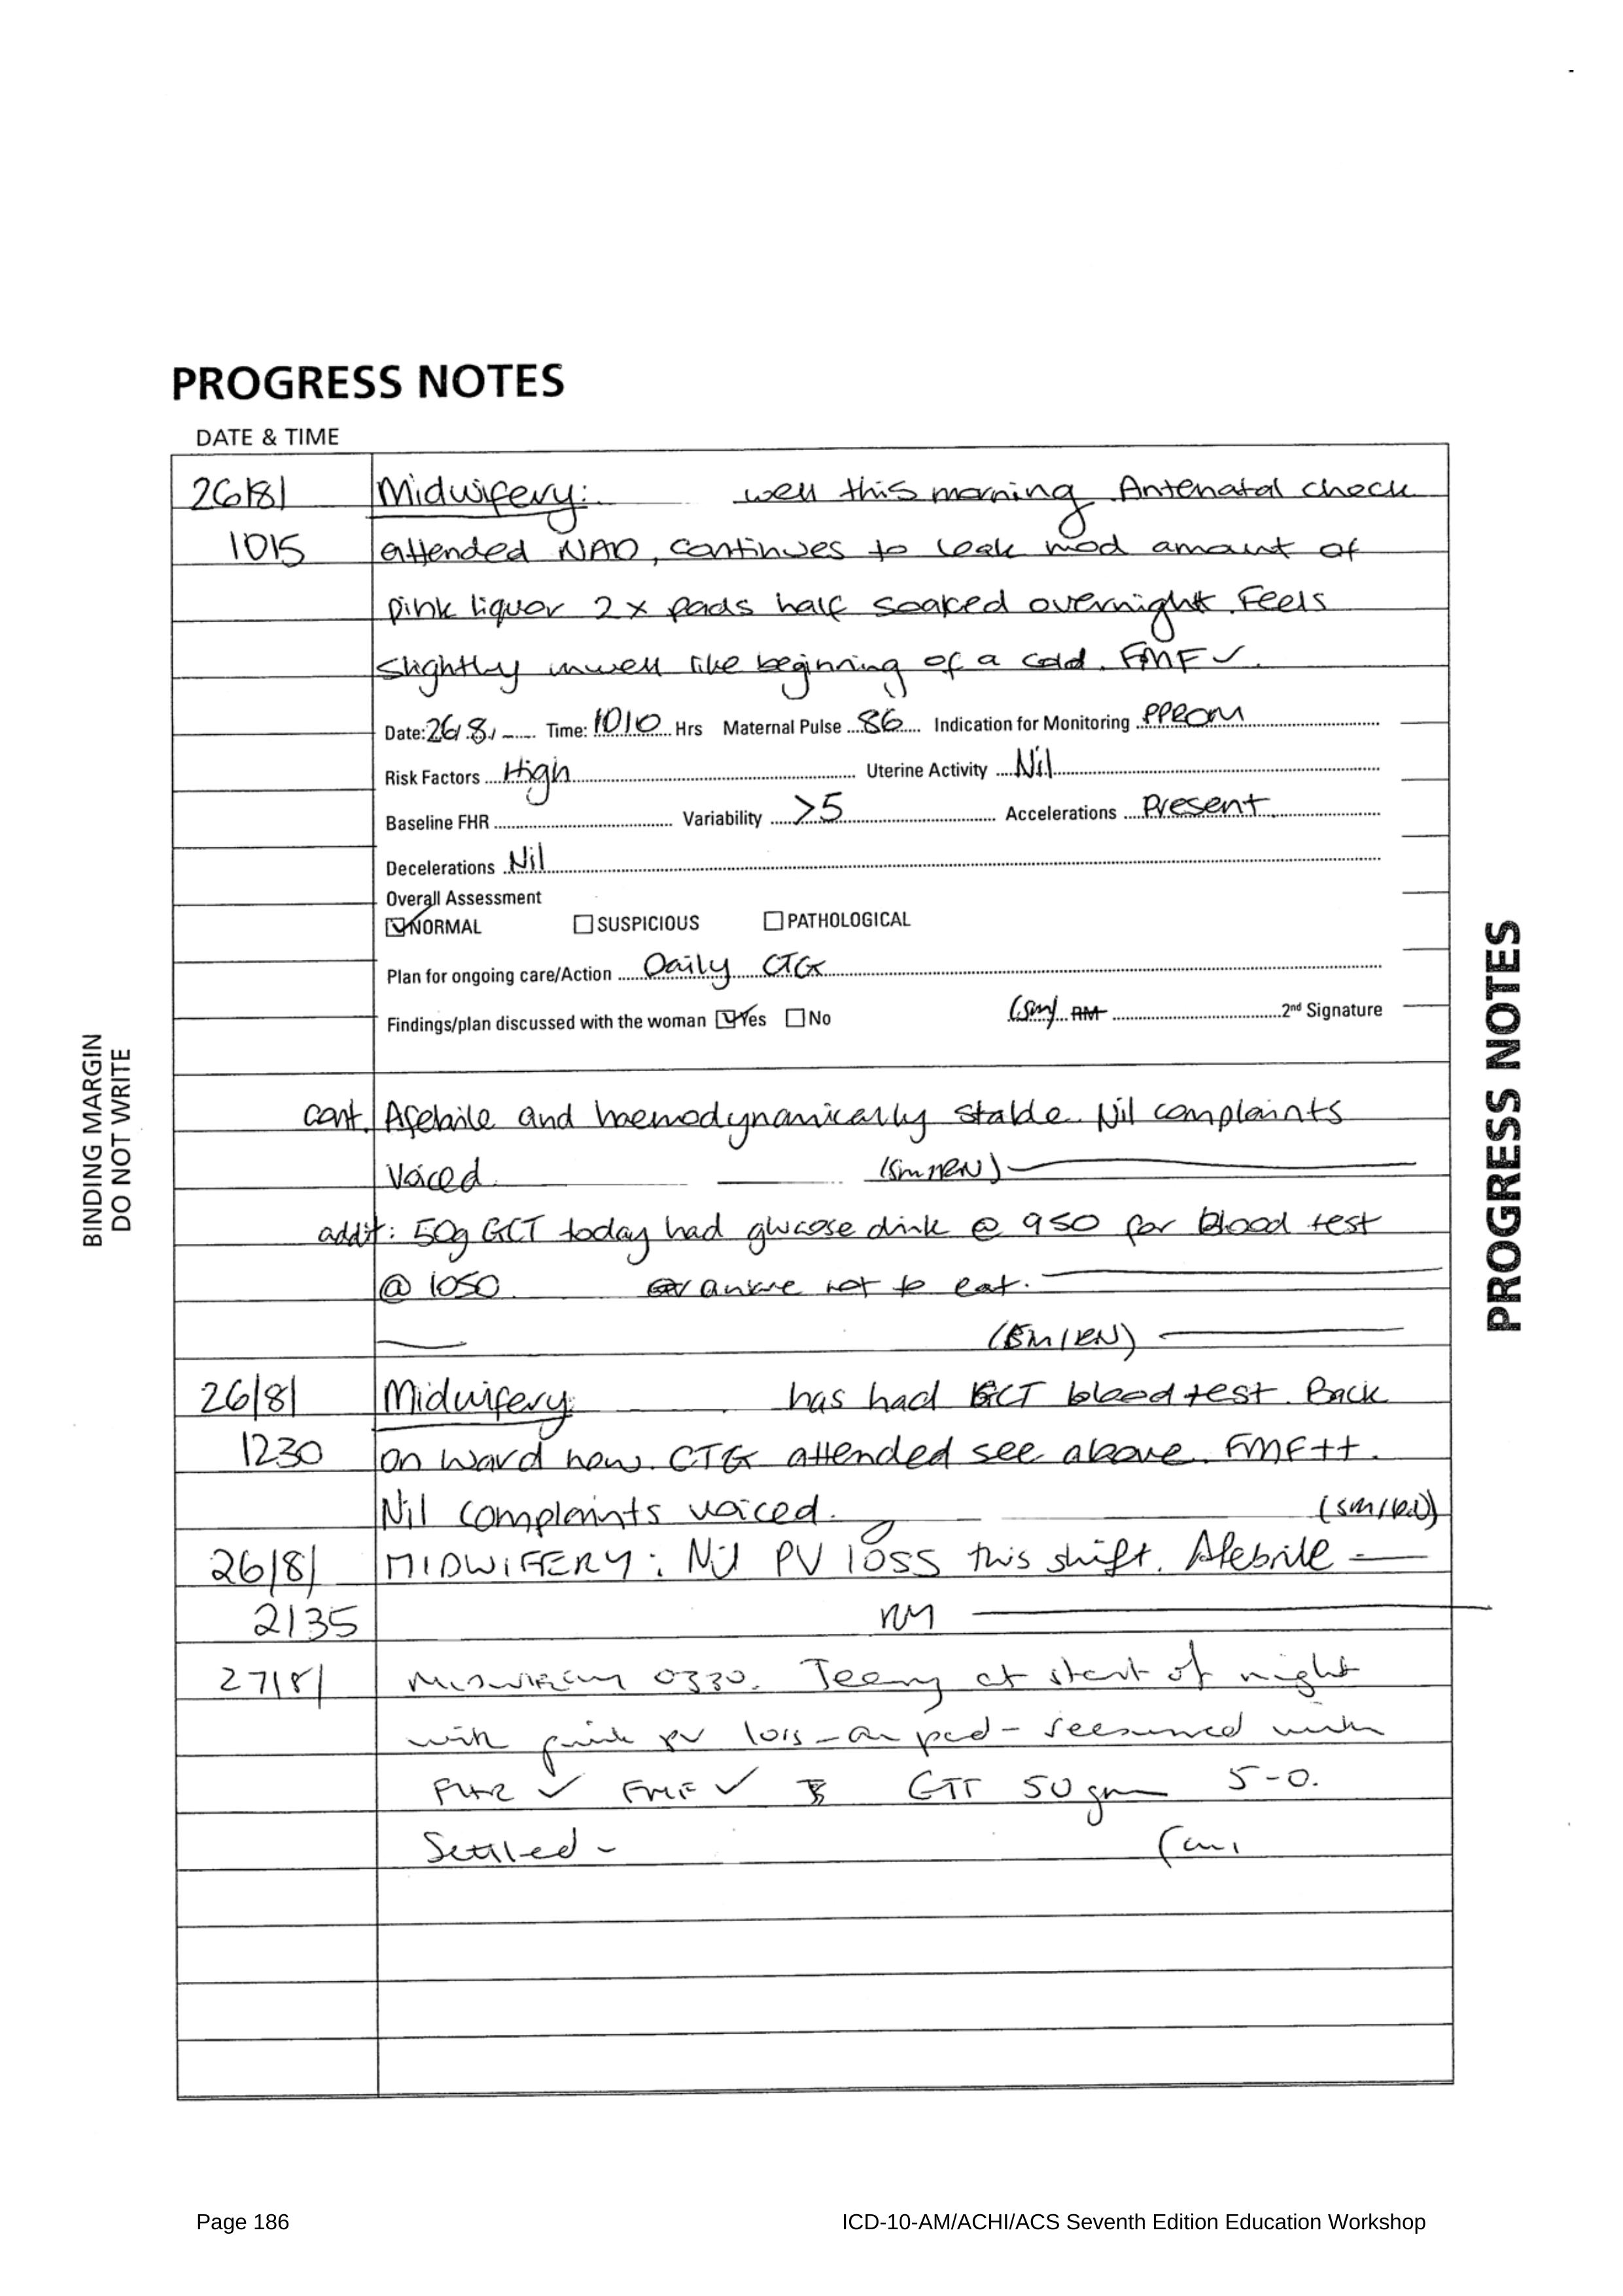 PROGRESS NOTES
DATE & TIME
26/8/ Midwifery: well this morning Antenatal check
1015 attended NAD, continues to leak mod amount of
pink liquor 2 x pads half soaked overnight. Feels
slightly unwell like beginning of a cold. FMF ✓.
Date: 26/8/ Time: 1010 Hrs Maternal Pulse 86 Indication for Monitoring PPROM
Risk Factors High Uterine Activity Nil
Baseline FHR Variability >5 Accelerations Present
Decelerations Nil
Overall Assessment
☑ NORMAL ☐ SUSPICIOUS ☐ PATHOLOGICAL
Plan for ongoing care/Action Daily CTG
Findings/plan discussed with the woman ☑ Yes ☐ No (SM) 2nd Signature
cont. Afebrile and haemodynamically stable. Nil complaints
voiced. (SM/RN)
addit: 50g GCT today had glucose drink @ 950 for blood test
@ 1050. aware not to eat.
(SM/RN)
26/8/ Midwifery: has had GCT blood test. Back
1230 on ward now. CTG attended see above. FMF++.
Nil complaints voiced. (SM/RN)
26/8/ MIDWIFERY: Nil PV loss this shift. Afebrile
2135 RM
27/8/ Midwifery 0330. Teary at start of night
with pink pv loss - on pad - reassured with
FHR ✓ FMF ✓ GTT 50 gm 5-0.
Settled -
BINDING MARGIN
DO NOT WRITE
PROGRESS NOTES
Page 186 ICD-10-AM/ACHI/ACS Seventh Edition Education Workshop